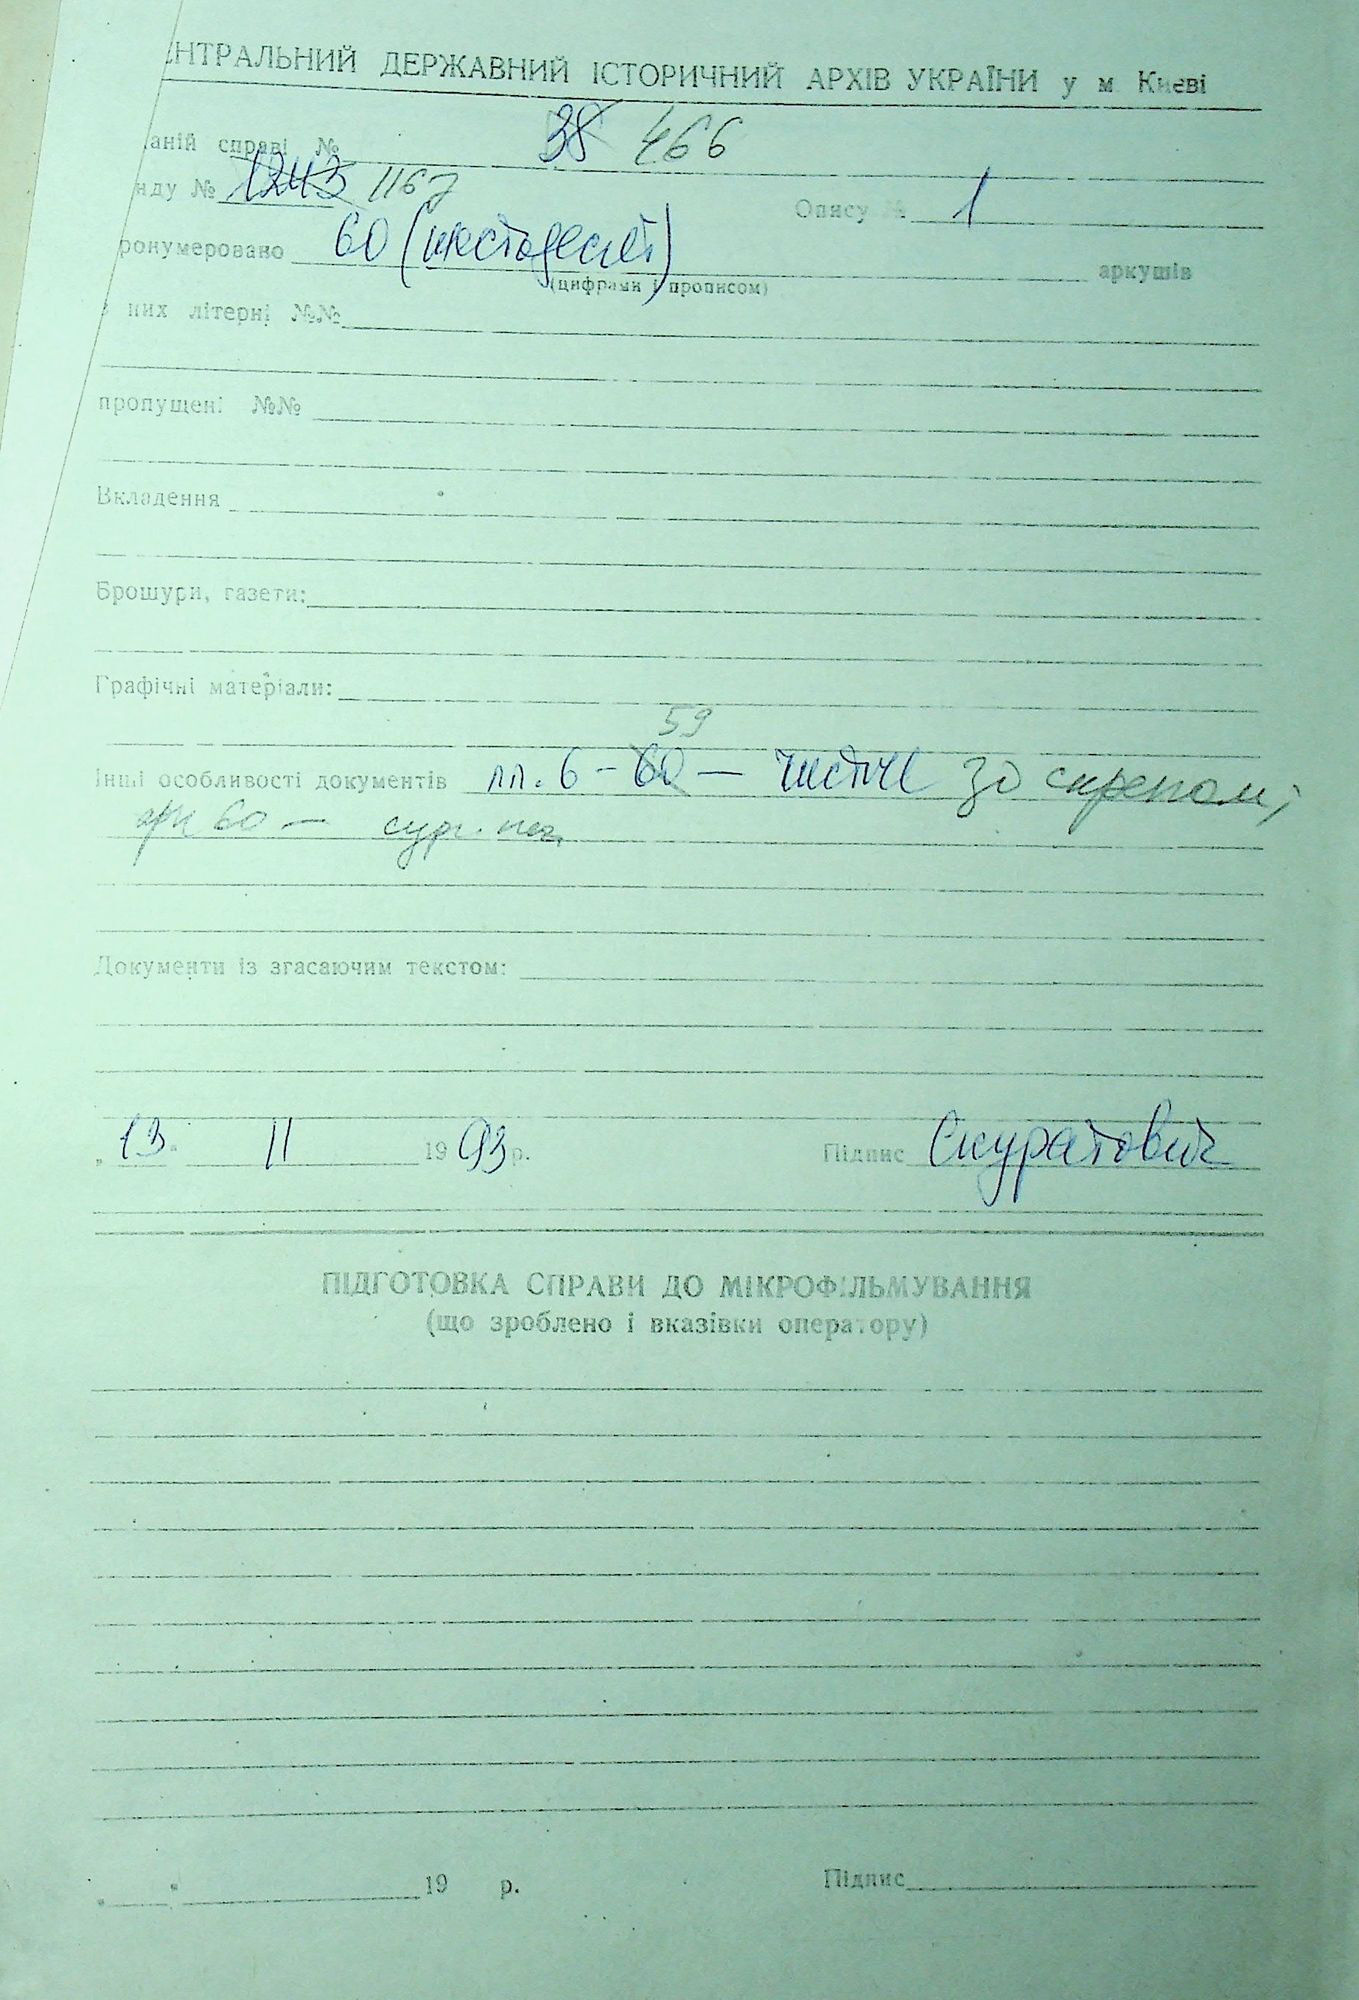 ЕНТРАЛЬНИЙ ДЕРЖАВНИЙ ІСТОРИЧНИЙ АРХІВ УКРАЇНИ у м. Києві
аній справі № 38 466
нду № 1243 1167 Опису № 1
ронумеровано 60 (шістдесят) аркушів
(цифрами і прописом)
з них літерні №№
пропущені №№
Вкладення
Брошури, газети:
Графічні матеріали:
59
Інші особливості документів лл. 6 – 60 – чисті зо скрепою;
арк 60 – сург. печ.
Документи із згасаючим текстом:
„13“ II 1993 р. Підпис Скуратович
ПІДГОТОВКА СПРАВИ ДО МІКРОФІЛЬМУВАННЯ
(що зроблено і вказівки оператору)
„ “ 19 р. Підпис